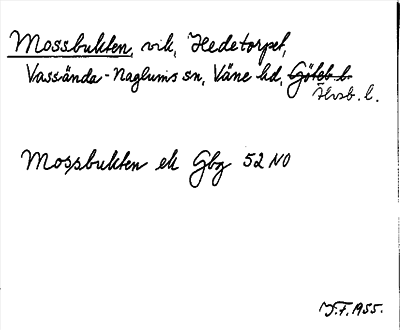 Mossbukten, vik, Hedetorpet,
Vassända-Naglums sn, Väne hd, Göteb. l.
Älvsb. l.
Mossbukten ek Gbg 52 NO
1955.